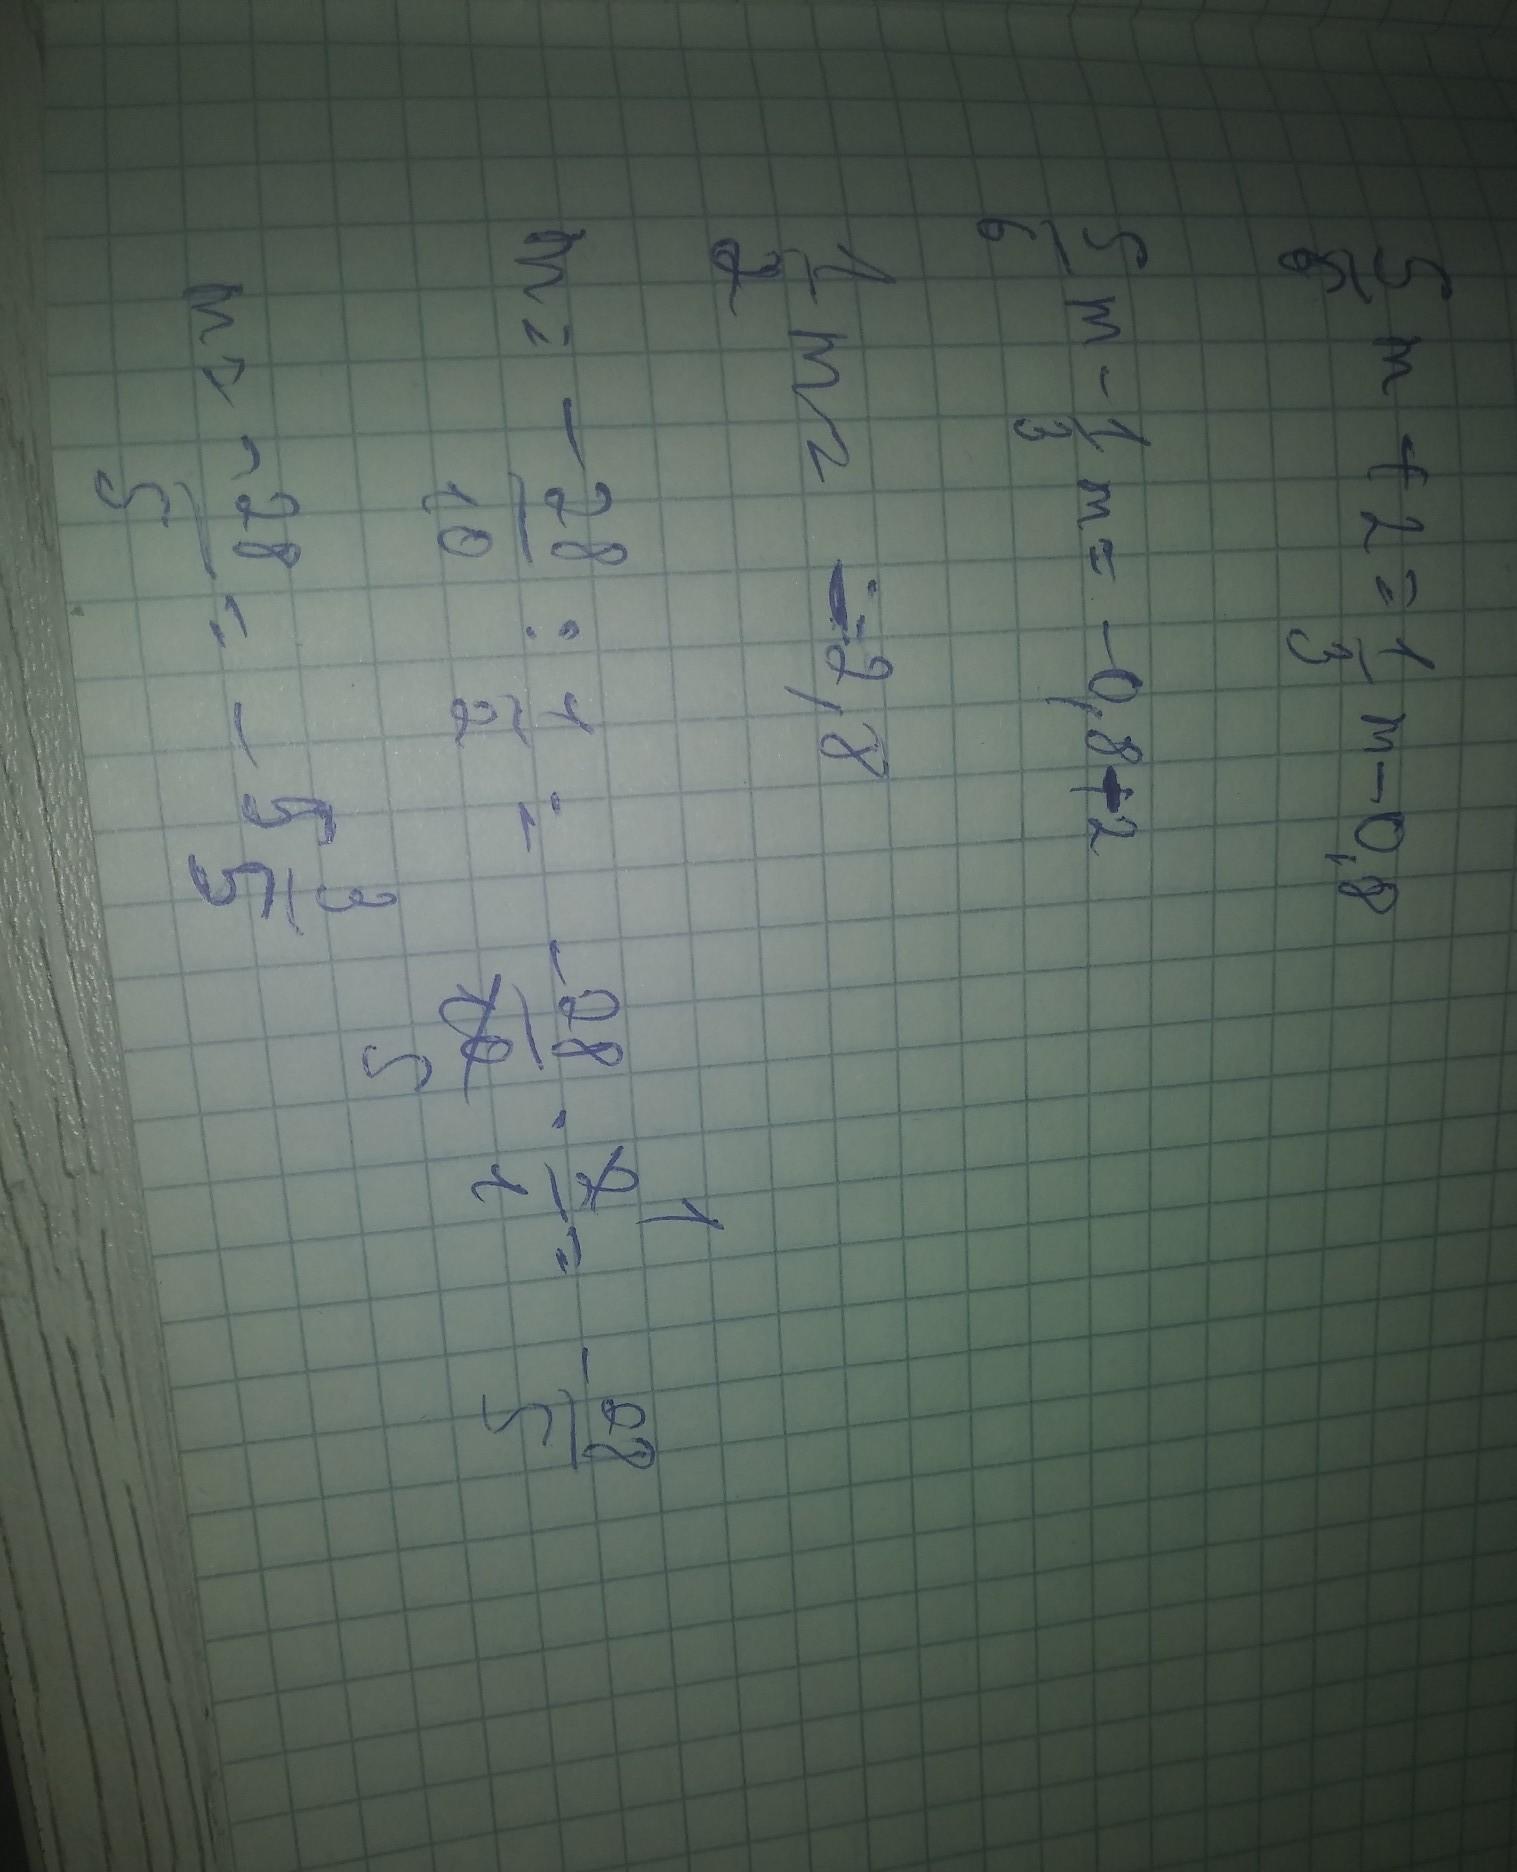 5/6 m + 2 = 1/3 m - 0,8
5/6 m - 1/3 m = -0,8 + 2
1/2 m = -2,8
m = - 28/10 : 1/2 = - 28/10 5 · 2/1 1 = - 28/5
m = - 28/5 = - 5 3/5